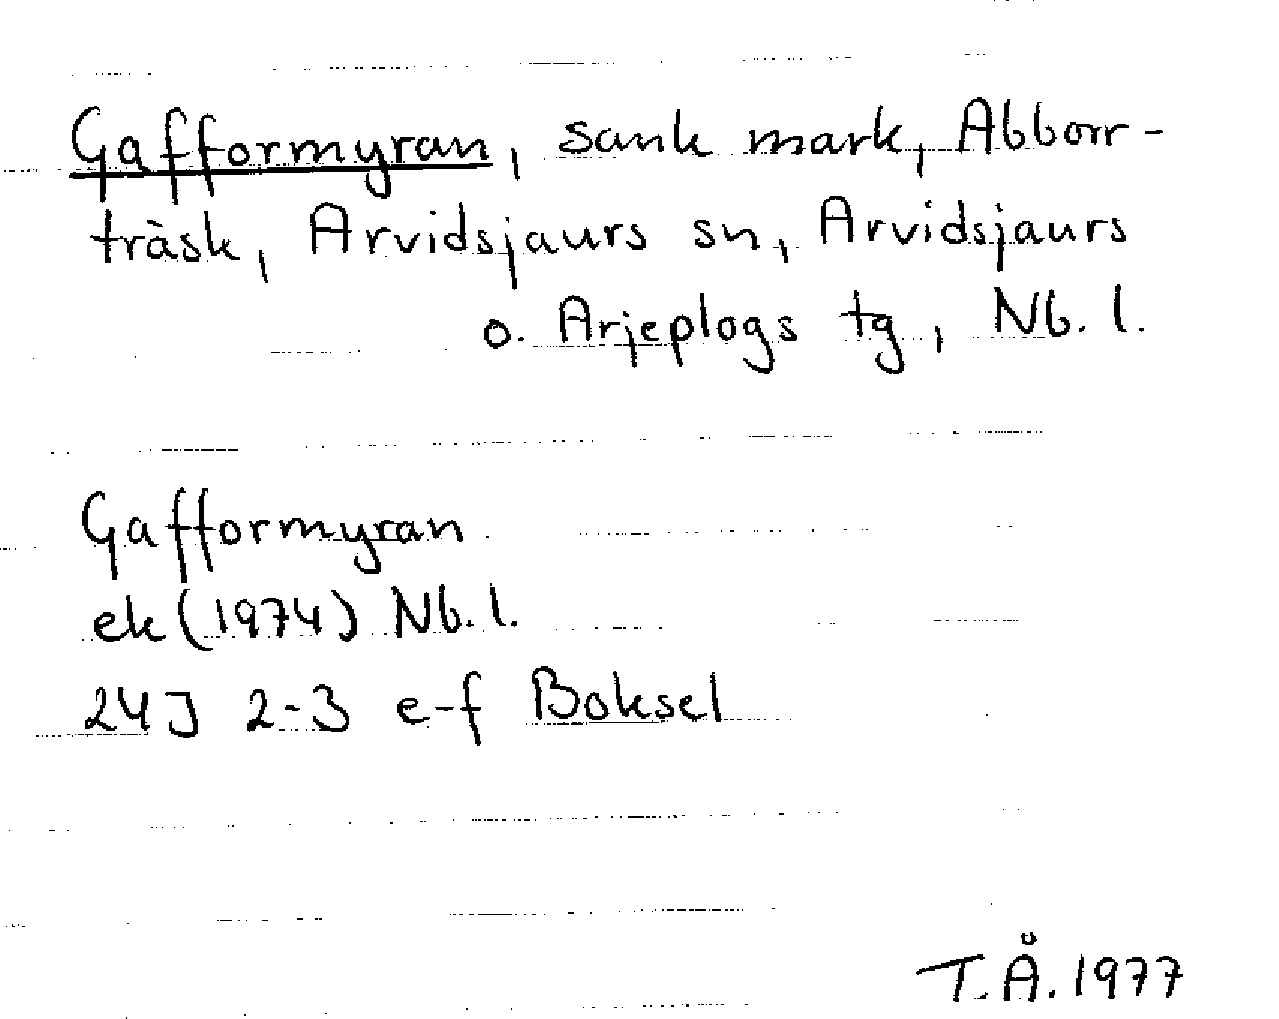 Gafformyran, sank mark, Abborr-
träsk, Arvidsjaurs sn, Arvidsjaurs
o. Arjeplogs tg, Nb. l.
Gafformyran
ek (1974) Nb. l.
24J 2-3 e-f Boksel
T.Å. 1977